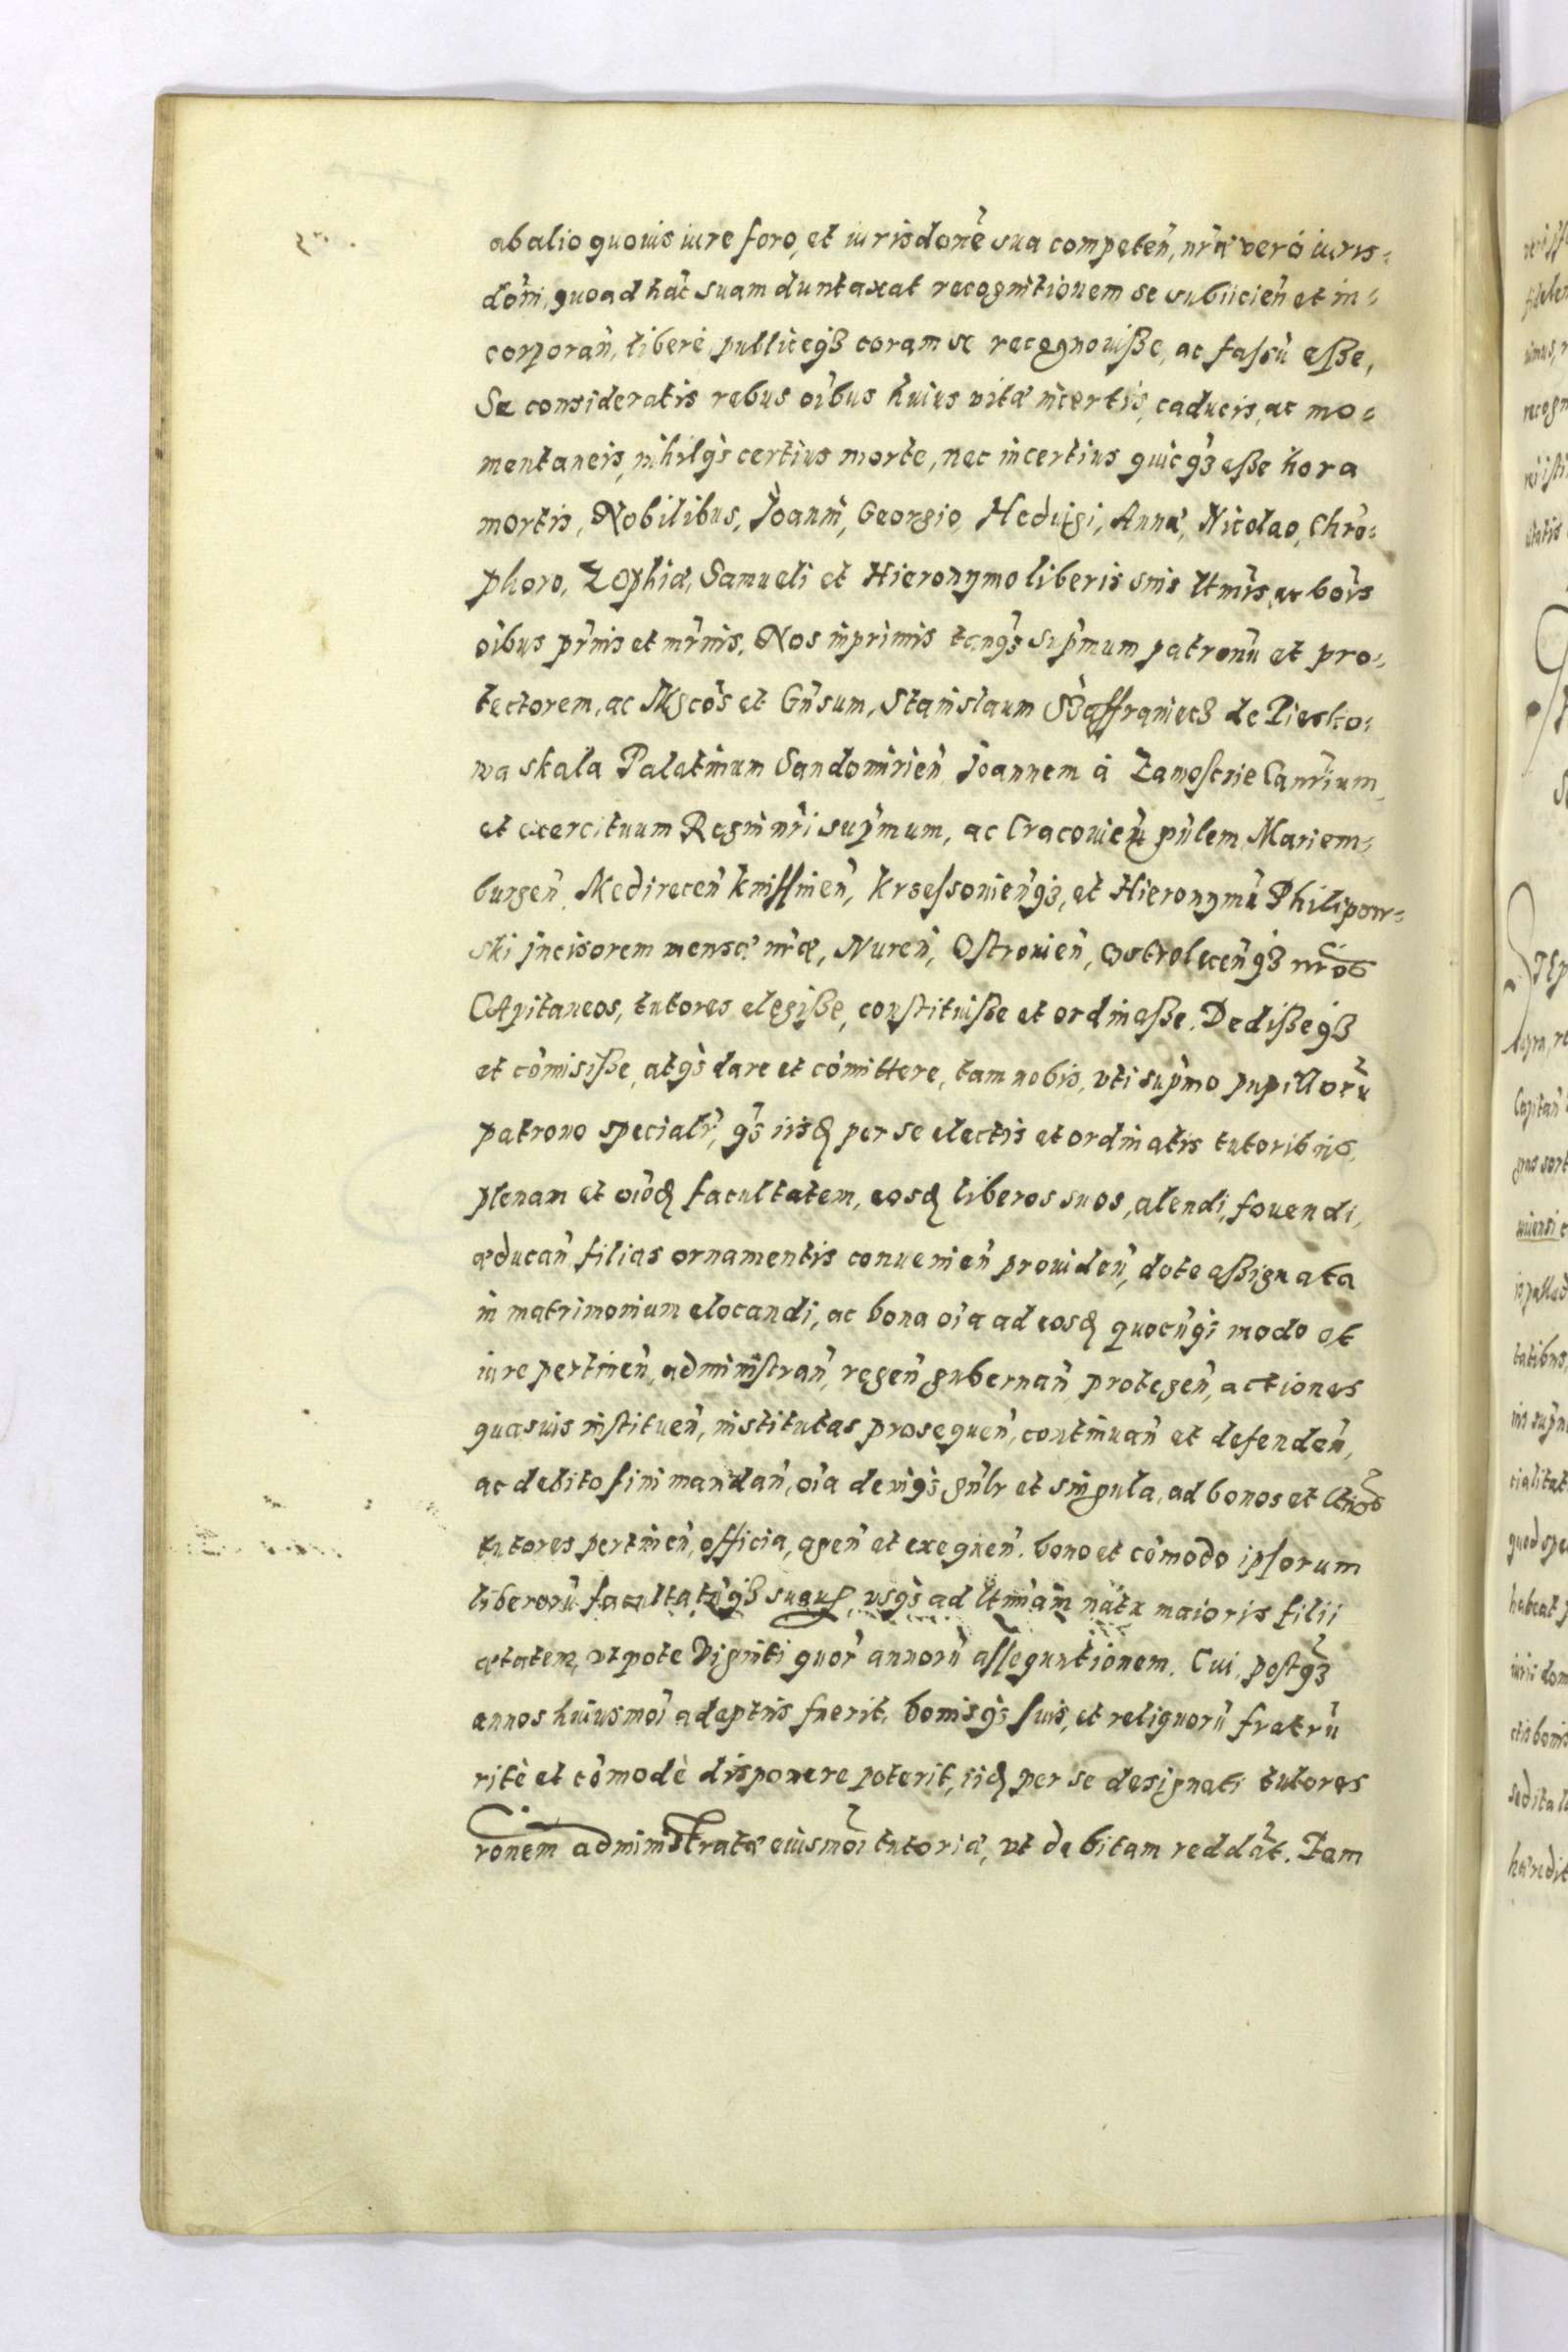 ab alio quouis iure foro, et iurisdone᷃ sua competeñ, nr̃æ verò iuris-
doñi, quoad hãc suam duntaxat recognitionem se subiicieñ et in-
corporañ, liberè publiceq3 coram se recognouiße, ac faſsũ eße,
Se consideratis rebus oĩbus huius vitæ incertis, caducis, ac mo-
mentaneis, nihilq3 certius morte, nec incertius quicq3 eße hora
mortis, Nobilibus, Joanni, Georgio, Hedvigi, Annæ, Nicolao, Chro-
phoro, Zophiæ, Samueli et Hieronymo liberis suis ltmĩs, ac boĩs
oĩbus pr̃nis et mr̃nis, Nos inprimis tanq3 sup̃mum patronũ et pro-
tectorem, ac Mgcõs et Gñsum, Stanislaum Szaffraniecz de Piesko-
wa skala Palatinum Sandomirieñ Joannem à Zamoſcie Canr̃ium
et exercituum Regni nr̃i sup̃mum, ac Cracouieñ gñlem, Mariem-
burgeñ Medireceñ kniſſineñ, krzeſsouieñq3, et Hieronymũ Philipow-
ski incisorem mensæ nr̃æ, Nureñ, Oſtrouieñ, Ostroleceñq3 nr̃os
Capitaneos, tutores elegiße, conſtituiße et ordinaße. Dedißeq3
et cõmisiße, atq3 dare et cõmittere, tam nobis, vti sup̃mo pupillorũ
patrono specialr̃, q3 iisd per se electis et ordinatis tutoribus,
plenam et oĩod facultatem, eosd liberos suos, alendi, fouendi,
æducañ filias ornamentis conuenieñ prouideñ, dote aßignata
in matrimonium elocandi, ac bona oĩa ad eosd quocũq3 modo et
iure pertineñ, adminiſtrañ, regeñ gubernañ protegeñ, actiones
quasuis inſtitueñ, institutas prosequeñ, continuañ et defendeñ,
ac debito fini mandañ, oĩa deniq3 gñlr et singula, ad bonos et ltmos
tutores pertineñ, officia, ageñ et exequeñ. bono et cõmodo ipſorum
liberorũ facultatũq3 suarum, vsq3 ad ltmĩam natu maioris filii
ætatem, vtpote Viginti quor̃ annorũ aſſequutionem. Cui, poſtq3
annos huiusmoĩ adeptus fuerit, bonisq3 ſuis, et reliquorũ fratrũ
ritè et cõmodè disponere poterit, iid per se designati tutores
rõnem administratæ eiusmoĩ tutoriæ, vt debitam reddãt. Tam